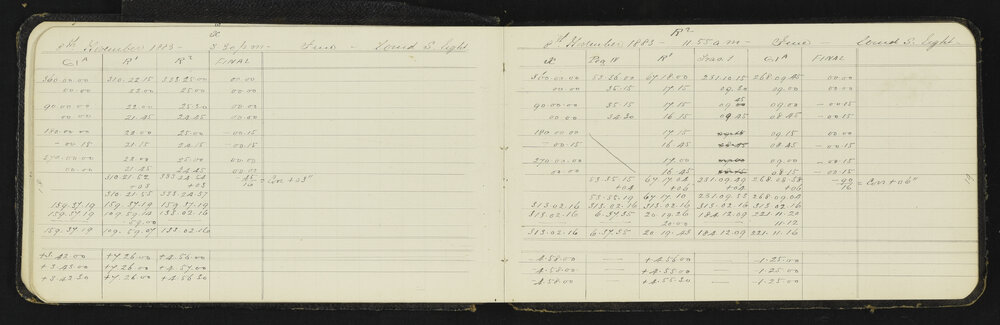 x
8th November 1883 - 3.30 p.m - Fine - Loud S. light
G1A R1 R2 FINAL
360.00.00 310.22.15 333.25.00 00.00
00.00 22.00 25.00 00.00
90.00.00 22.00 25.30 00.00
00.00 21.45 24.45 00.00
180.00.00 22.00 25.00 - 00.15
- 00.15 21.15 24.15 - 00.15
270.00.00 22.00 25.00 00.00
00.00 21.45 24.45 00.00
310.21.52 333.24.54 = Corr +03"
+03 +03 16
310.21.55 333.24.57
159.37.19 159.37.19 159.37.19
159.37.19 109.59.14 133.02.16
159.37.19 109.59.07 133.02.16
+3.42.00 +7.26.00 +4.56.00
+3.43.00 +7.26.00 +4.57.00
+3.42.30 +7.26.00 +4.56.30
R2
8th November 1883 - 11.55 a.m - Fine - Loud S. light
x Peg 18 R1 Trav. 1 G1A FINAL
360.00.00 53.36.00 67.18.00 231.10.15 268.09.45 00.00
00.00 35.15 17.15 09.30 09.00 00.00
90.00.00 35.15 17.15 09.00 - 00.15
00.00 34.30 16.15 09.45 08.45 - 00.15
180.00.00 17.15 09.15 00.15
- 00.15 16.45 08.45 - 00.15
270.00.00 17.00 09.00 - 00.15
00.00 16.45 08.15 - 00.15
53.35.15 67.17.04 231.09.49 268.08.58 = Corr +06"
+04 +06 +04 +06 16
53.35.19 67.17.10 231.09.53 268.09.04
313.02.16 313.02.16 313.02.16 313.02.16 313.02.16
313.02.16 6.37.35 20.19.26 184.12.09 221.11.20
20.00 11.12
313.02.16 6.37.35 20.19.43 184.12.09 221.11.16
- 4.58.00 — +4.56.00 — - 1.25.00
- 4.58.00 — +4.55.00 — - 1.25.00
- 4.58.00 — +4.55.30 — - 1.25.00